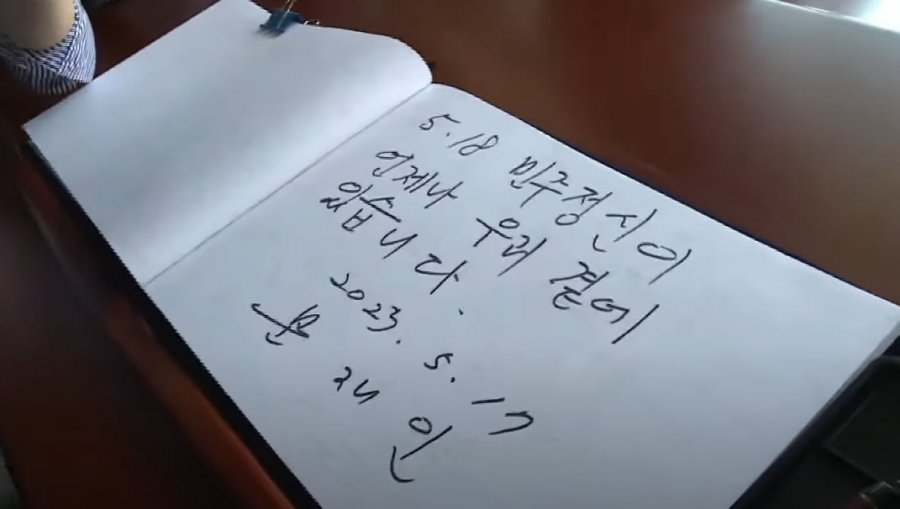 5.18 민주정신이
언제나 우리 곁에
있습니다.
2023. 5. 17
문재인